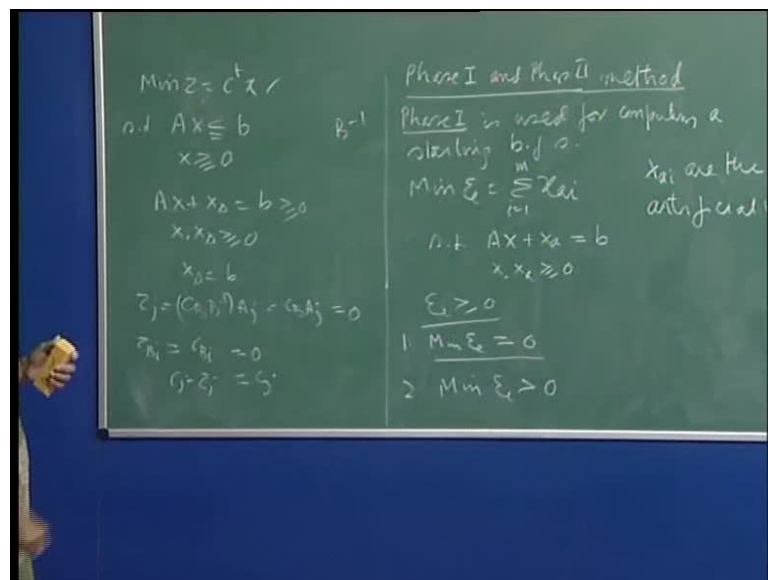 Min Z = c^t x
s.t Ax ≤ b
x ≥ 0
B^-1
Ax + x_s = b ≥ 0
x, x_s ≥ 0
x_s = b
Z_j = (C_B B^-1) A_j = C_B A_j = 0
Z_Bj = C_Bj = 0
C_j - Z_j = C_j
Phase I and Phase II method
Phase I is used for computing a
starting b.f s.
Min ξ = Σ_{i=1}^{m} x_ai
x_ai are the
artificial
s.t. Ax + x_a = b
x, x_a ≥ 0
ξ ≥ 0
1 Min ξ = 0
2 Min ξ > 0